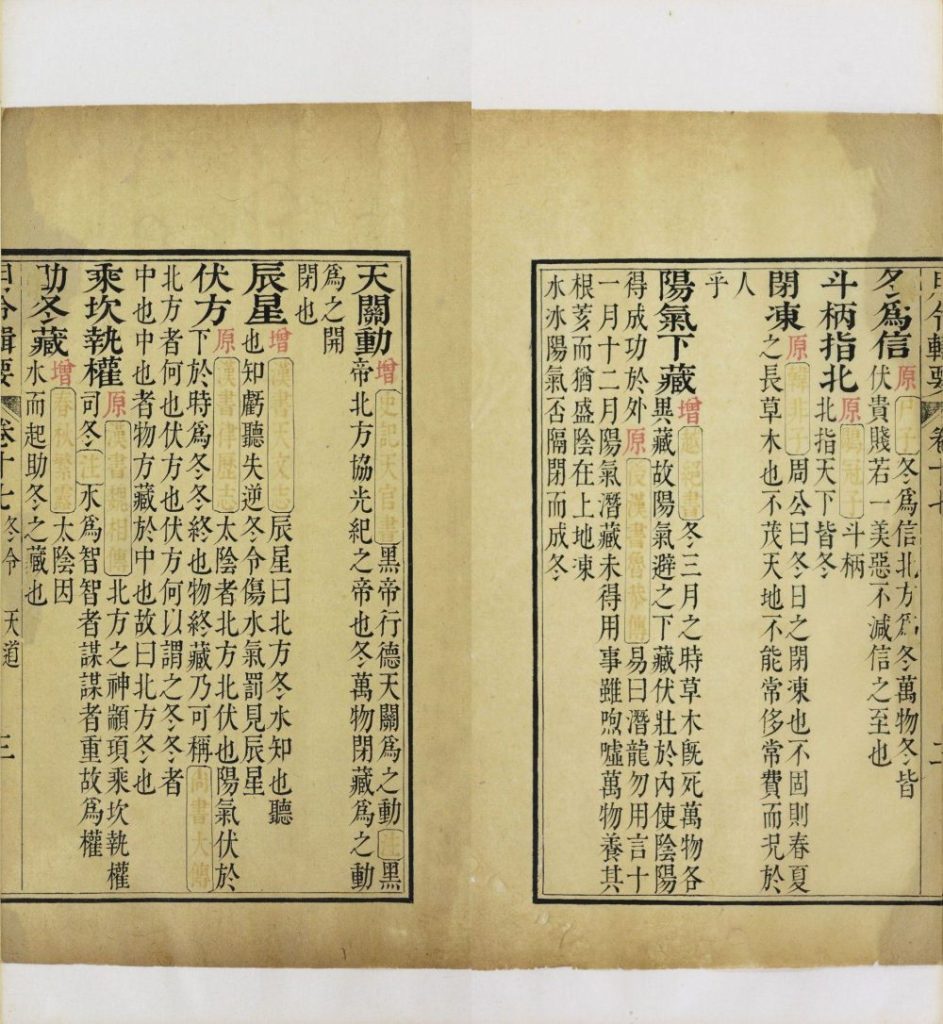 月令輯要 卷十七 二
冬爲信 原 尸子 冬爲信北方爲冬萬物冬皆
伏貴賤若一美惡不減信之至也
斗柄指北 原 鶡冠子 斗柄
北指天下皆冬
閉凍 原 韓非子 周公曰冬日之閉凍也不固則春夏
之長草木也不茂天地不能常侈常費而况於
人
乎
陽氣下藏 增 越絕書 冬三月之時草木旣死萬物各
異藏故陽氣避之下藏伏壯於內使陰陽
得成功於外 原 後漢書魯恭傳 易曰潛龍勿用言十
一月十二月陽氣潛藏未得用事雖煦噓萬物養其
根荄而猶盛陰在上地凍
水冰陽氣否隔閉而成冬
天關動 增 史記天官書 黑帝行德天關爲之動 注 黑
帝北方協光紀之帝也冬萬物閉藏爲之動
爲之開
閉也
辰星 增 漢書天文志 辰星曰北方冬水知也聽
也知虧聽失逆冬令傷水氣罰見辰星
伏方 原 漢書律歷志 太陰者北方北伏也陽氣伏於
下於時爲冬冬終也物終藏乃可稱 尚書大傳
北方者何也伏方也伏方何以謂之冬冬者
中也中也者物方藏於中也故曰北方冬也
乘坎執權 原 漢書魏相傳 北方之神顓頊乘坎執權
司冬 注 水爲智智者謀謀者重故爲權
助冬藏 增 春秋繁露 太陰因
水而起助冬之藏也
月令輯要 卷十七 冬令 天道 三